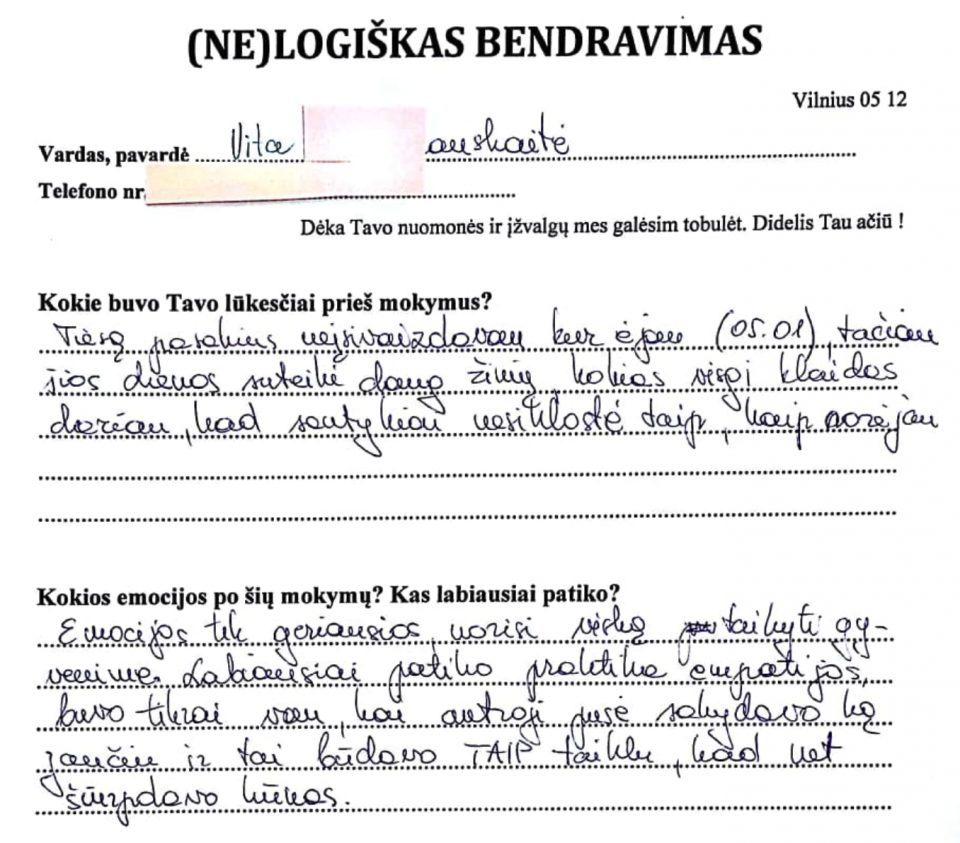 (NE)LOGIŠKAS BENDRAVIMAS
Vilnius 05 12
Vardas, pavardė Vita auskaitė
Telefono nr.
Dėka Tavo nuomonės ir įžvalgų mes galėsim tobulėt. Didelis Tau ačiū !
Kokie buvo Tavo lūkesčiai prieš mokymus?
Tiesą pasakius neįsivaizdavau kur ėjau (05.01), tačiau
šios dienos suteikė daug žinių, kokias visgi klaidas
dariau, kad santykiai nesiklostė taip, kaip norėjau
Kokios emocijos po šių mokymų? Kas labiausiai patiko?
Emocijos tik geriausios, norisi viską taikyti gy-
venime. Labiausiai patiko praktika empatijos,
buvo tikrai wau, kai antroji pusė sakydavo ką
jaučiu ir tai būdavo TAIP taiklu, kad net
šiurpdavo kūnas.